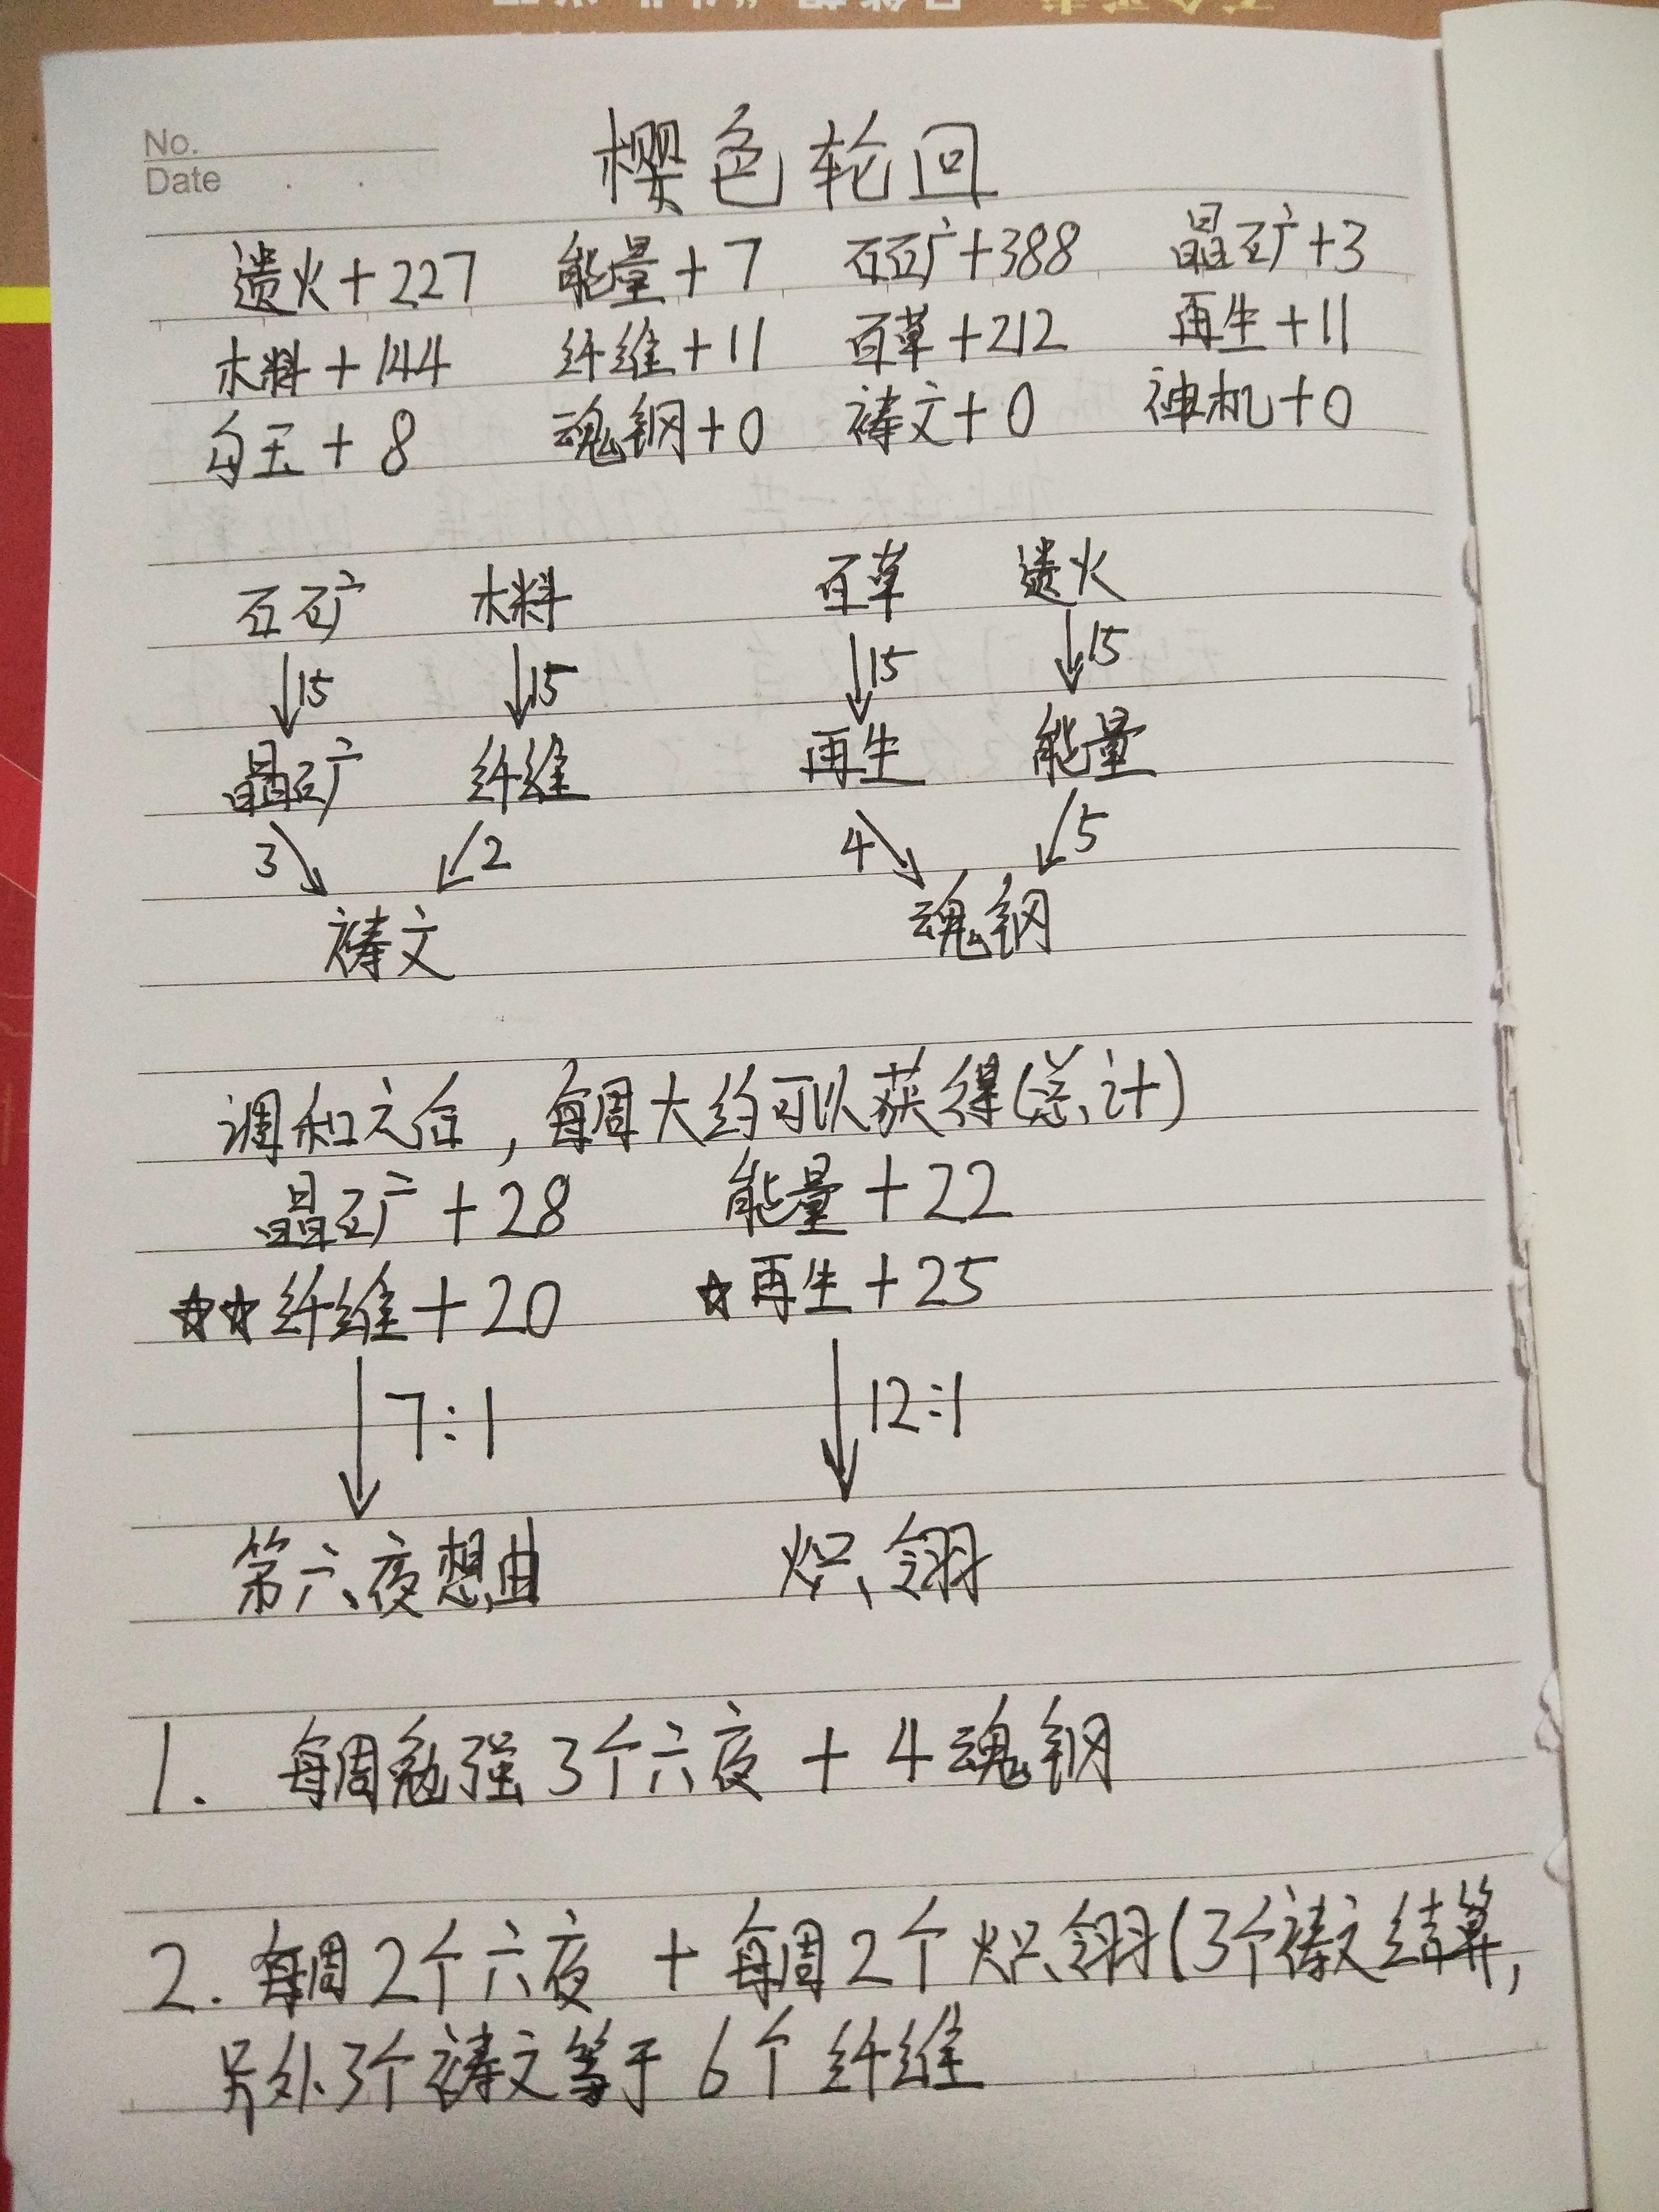 No.
Date
樱色轮回
遗火+227 能量+7 石矿+388 晶矿+3
木料+144 纤维+11 百草+212 再生+11
勾玉+8 魂钢+0 祷文+0 神机+0
石矿 木料 百草 遗火
↓15 ↓15 ↓15 ↓15
晶矿 纤维 再生 能量
3↘ ↙2 4↘ ↙5
祷文 魂钢
调和元台,每周大约可以获得(总计)
晶矿+28 能量+22
☆☆纤维+20 ☆再生+25
↓7:1 ↓12:1
第六夜想曲 炽翎
1. 每周勉强3个六夜+4魂钢
2. 每周2个六夜+每周2个炽翎(3个祷文结算,
另外3个祷文等于6个纤维